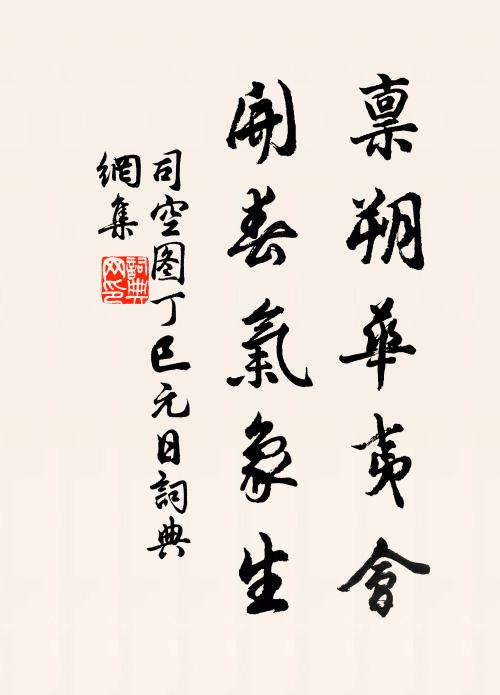 禀朔華夷會
開春氣象生
司空图丁巳元日詞典
網集
詞典
网印